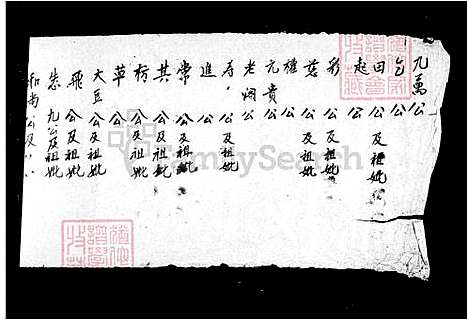 九萬公
乞公
田公及祖妣
起公
彩公及祖妣
菱公及祖妣
權公
元貴公
老烱公
寿公及祖妣
進公
常公及祖妣
其公及祖妣
材公及祖妣
草公
大豆公及祖妣
飛公及祖妣
九公及祖妣
和尚公及
FamilySearch